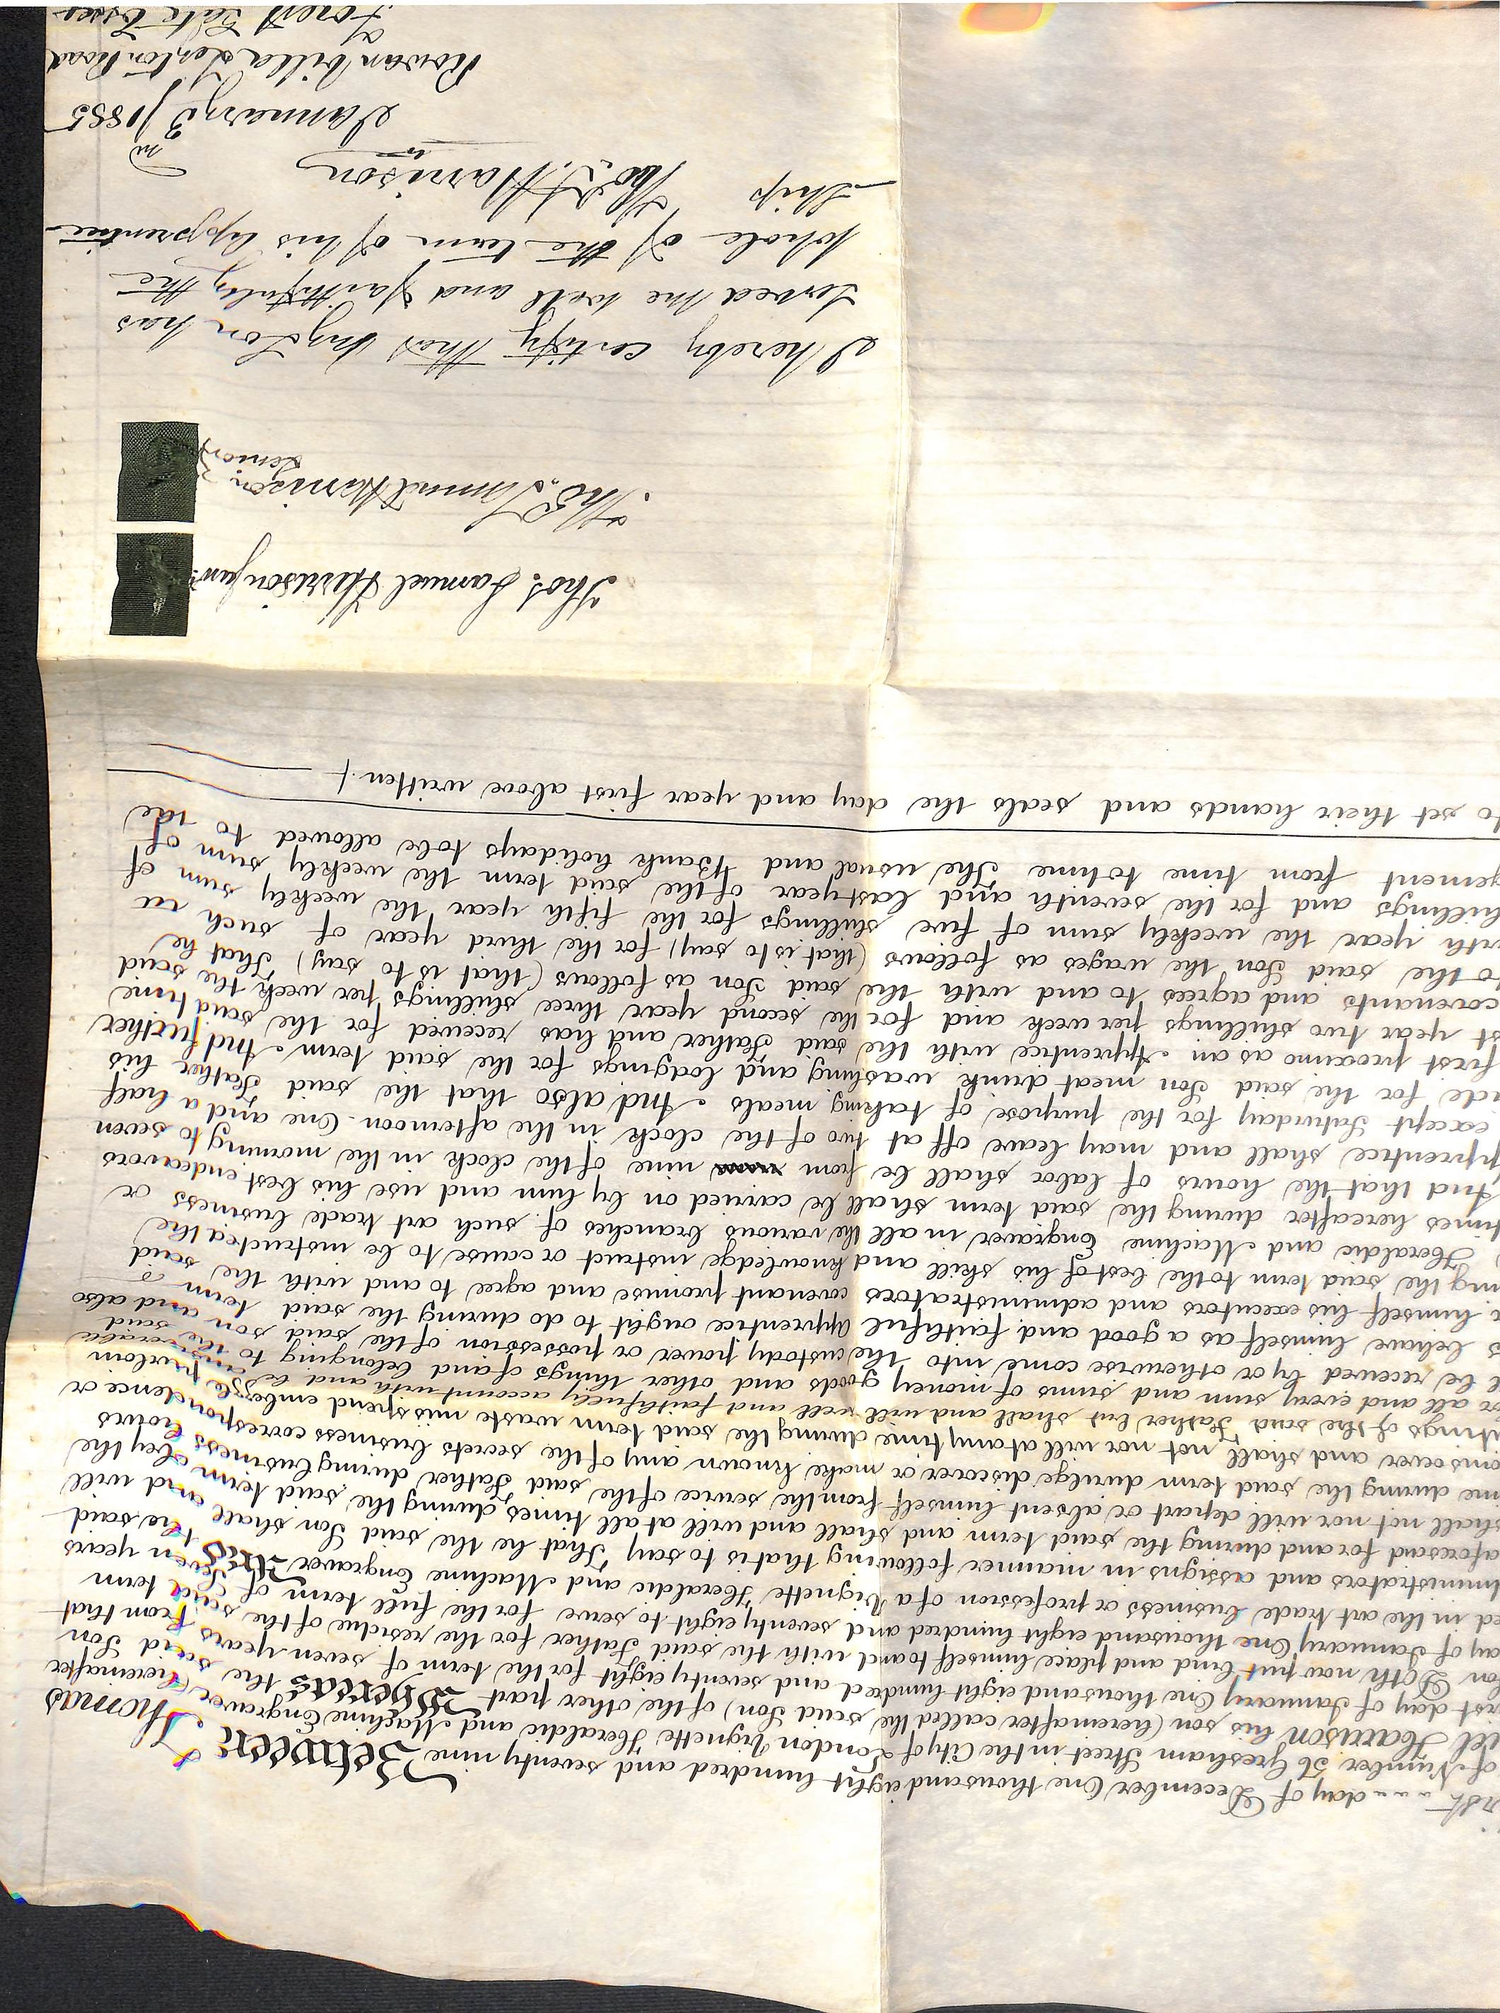 irst day of December One thousand eight hundred and seventy nine Between Thomas
of Number 56 Gresham Street in the City of London Vignette Heraldic and Machine Engraver (hereinafter
uel Harrison his son (hereinafter called the said Son) of the other part Whereas the said Son
rst day of January One thousand eight hundred and seventy eight for the term of seven years from that
on Doth now put bind and place himself to and with the said Father for the residue of the said term
ay of January One thousand eight hundred and seventy eight to serve for the full term of seven years
ed in the art trade business or profession of a Vignette Heraldic and Machine Engraver And the said
ministrators and assigns in manner following that is to say That he the said Son shall and will
aforesaid for and during the said term and shall and will at all times during the said term
shall not nor will depart or absent himself from the service of the said Father during business hours
me during the said term divulge discover or make known any of the secrets business correspondence or
msoever and shall not nor will at any time during the said term waste misspend embezzle purloin
things of the said Father but shall and will well and faithfully account with and
or all and every sum and sums of money goods and other things of and belonging to the said
ll be received by or otherwise come into the custody power or possession of the said son and also
s behave himself as a good and faithful Apprentice ought to do during the said term
r himself his executors and administrators covenant promise and agree to and with the said
ing the said term to the best of his skill and knowledge instruct or cause to be instructed the
Heraldic and Machine Engraver in all the various branches of such art trade business or
times hereafter during the said term shall be carried on by him and use his best endeavors
And that the hours of labor shall be from nine of the clock in the morning to seven
pprentice shall and may leave off at two of the clock in the afternoon One and a half
except Saturday for the purpose of taking meals And also that the said Father his
ide for the said Son meat drink washing and lodgings for the said term And further
first proximo as an Apprentice with the said Father and has received for the said time
st year two shillings per week and for the second year three shillings per week the said
covenants and agrees to and with the said Son as follows (that is to say) That he
to the said Son the wages as follows (that is to say) for the third year of such
rth year the weekly sum of five shillings for the fifth year the weekly sum of
hillings and for the seventh and last year of the said term the weekly sum of
gement from time to time The usual and Bank holidays to be allowed to
to set their hands and seals the day and year first above written
Thos. Samuel Harrison junr.
Thos. Samuel Harrison
Senior
I hereby certify that my Son has
served me well and faithfully the
whole of the term of his Apprentice
ship
Thos. S. Harrison
January 3rd/1885
Rowan Villa Road
Forest Gate Essex